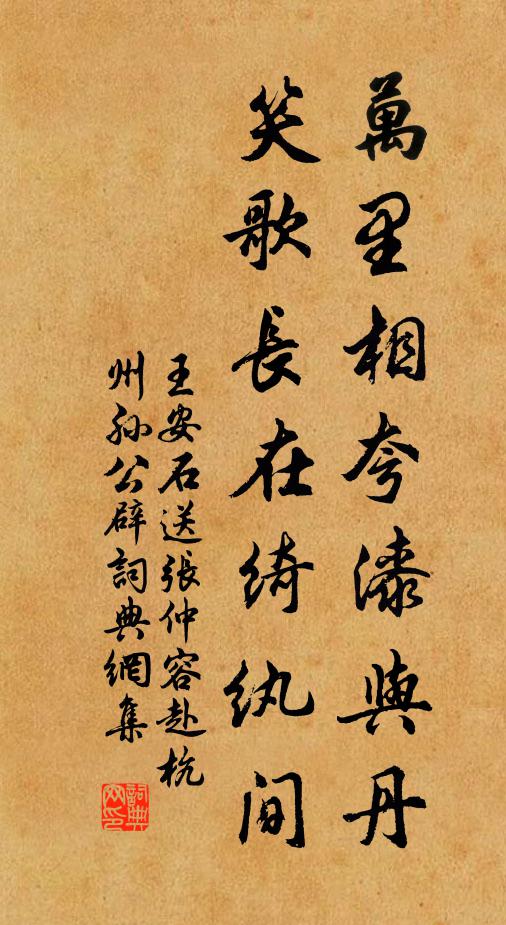 萬里相夸漆與丹
笑歌長在綺紈间
王安石送張仲容赴杭
州孙公辟詞典網集
詞典网印